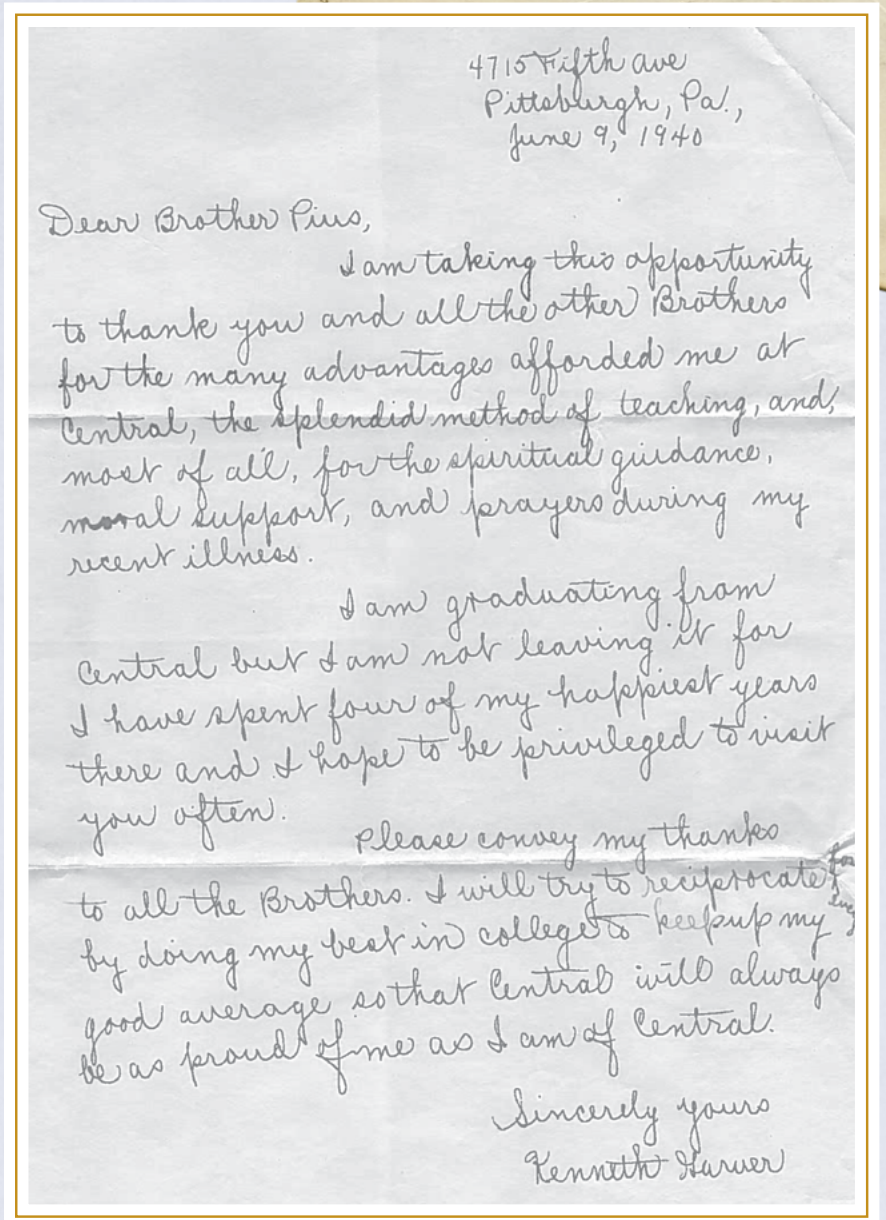 4715 Fifth Ave
Pittsburgh, Pa.,
June 9, 1940
Dear Brother Pius,
I am taking this opportunity
to thank you and all the other Brothers
for the many advantages afforded me at
Central, the splendid method of teaching, and,
most of all, for the spiritual guidance,
moral support, and prayers during my
recent illness.
I am graduating from
Central but I am not leaving it for
I have spent four of my happiest years
there and I hope to be privileged to visit
you often.
Please convey my thanks
for
to all the Brothers. I will try to reciprocate
by doing my best in college to keep up my
good average so that Central will always
be as proud of me as I am of Central.
Sincerely yours
Kenneth